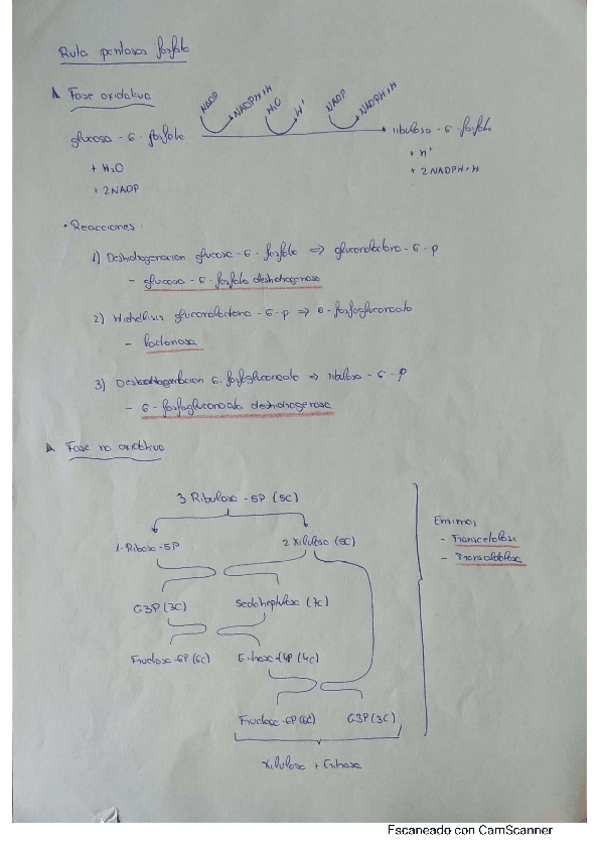 Ruta pentosas fosfato
Fase oxidativa
NADP NADPH+H H2O H+ NADP NADPH+H
glucosa - 6 - fosfato ribulosa - 6 - fosfato
+ H2O + H+
+ 2NADP + 2 NADPH+H
• Reacciones:
1) Deshidrogenacion glucosa - 6 - fosfato ⇒ gluconolactona - 6 - p
- glucosa - 6 - fosfato deshidrogenasa
2) Hidrolisis gluconolactona - 6 - p ⇒ 6 - fosfogluconato
- lactonasa
3) 6 - fosfogluconato ⇒ ribulosa - 6 - p
- 6 - fosfogluconato deshidrogenasa
Fase no oxidativa
3 Ribulosa - 5P (5C)
1 - Ribosa - 5P 2 Xilulosa (5C)
Enzimas
- Trancetolasa
- Transaldolasa
G3P (3C) Sedoheptulosa (7C)
Fructosa - 6P (6C) Eritrosa - 4P (4C)
Fructosa - 6P (6C) G3P (3C)
Xilulosa + Eritrosa
Escaneado con CamScanner